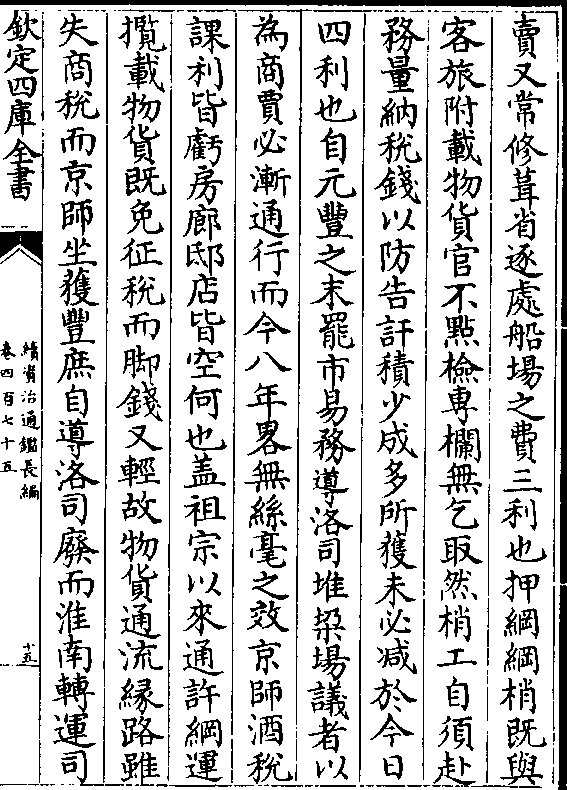 賣又常修葺省逐處船場之費三利也押綱綱梢既與
客旅附載物貨官不點檢專欄無乞取然梢工自須赴
務量納稅錢以防告訐積少成多所獲未必減於今日
四利也自元豐之末罷市易務導洛司堆垜場議者以
為商賈必漸通行而今八年畧無絲毫之效京師酒稅
課利皆虧房廊邸店皆空何也盖祖宗以來通許綱運
攬載物貨既免征稅而脚錢又輕故物貨通流縁路雖
失商稅而京師坐獲豐庶自導洛司廢而淮南轉運司
欽定四庫全書
續資治通鑑長編
卷四百七十五
十五